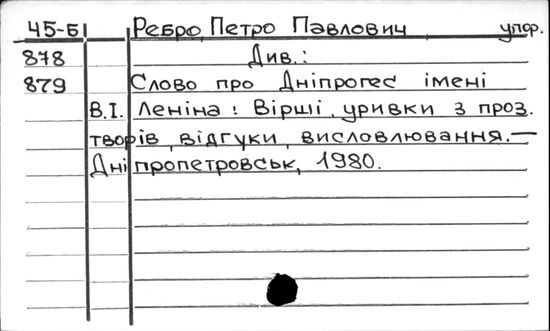 45-Б Ребро, Петро Павлович упор.
878 Див.:
879 Слово про Дніпрогес імені
В.І. Леніна: Вірші, уривки з проз.
творів, відгуки, висловлювання.—
Дніпропетровськ, 1980.